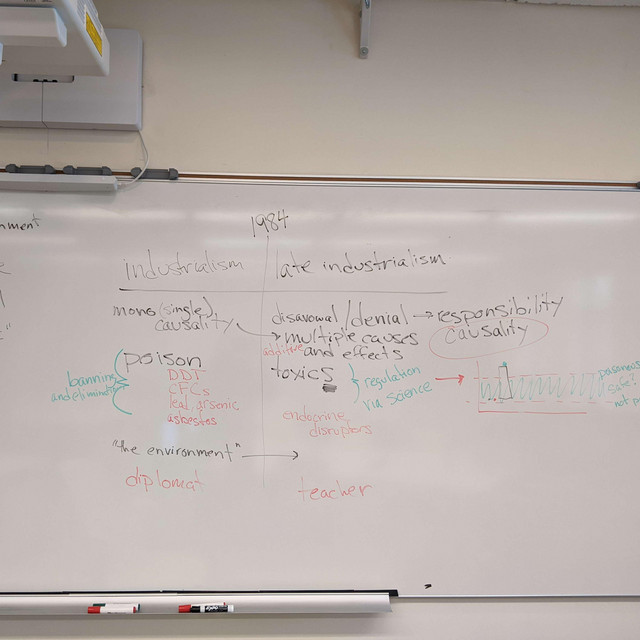 1984
industrialism
late industrialism
mono (single)
causality
disavowal/denial → responsibility
multiple causes
additive
and effects
causality
poison
DDT
CFCs
lead, arsenic,
asbestos
banning
toxics
regulation
via science
endocrine
disruptors
"the environment"
diplomat
teacher
safe?